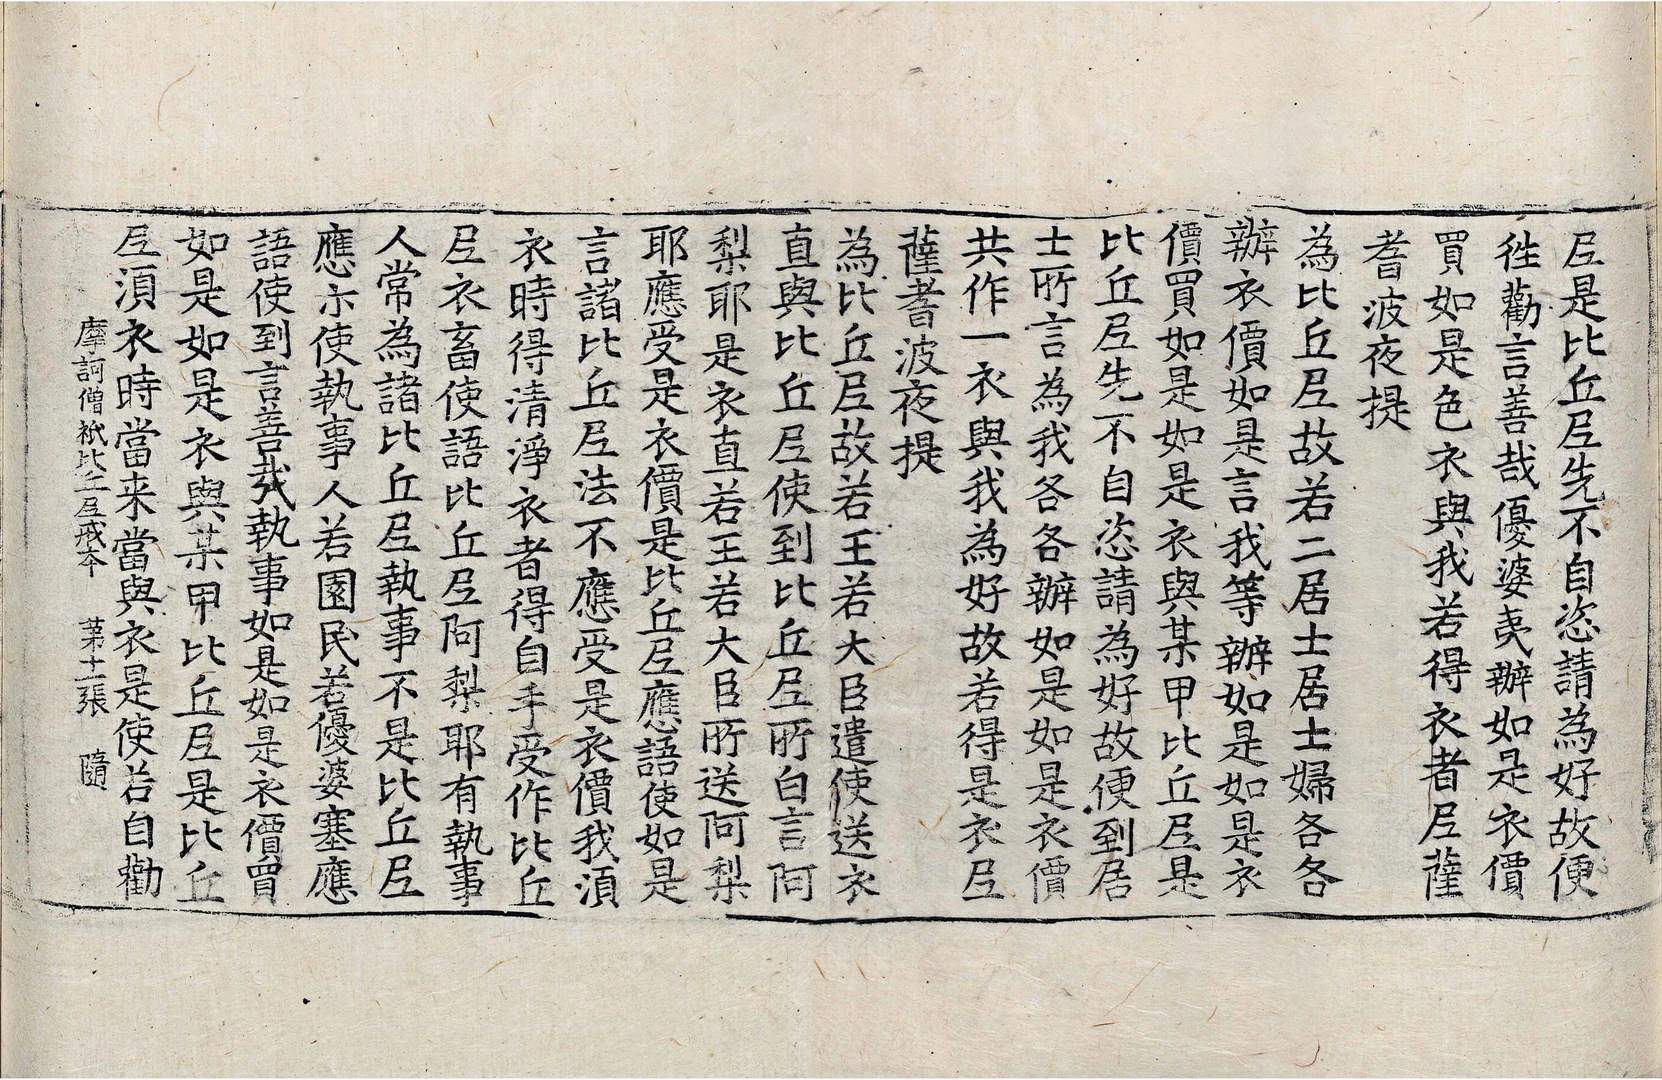 尼是比丘尼先不自恣請為好故便
徃勸言善哉優婆夷辦如是衣價
買如是色衣與我若得衣者尼薩
耆波夜提
為比丘尼故若二居士居士婦各各
辦衣價如是言我等辦如是如是衣
價買如是如是衣與某甲比丘尼是
比丘尼先不自恣請為好故便到居
士所言為我各各辦如是如是衣價
共作一衣與我為好故若得是衣尼
薩耆波夜提
為比丘尼故若王若大臣遣使送衣
直與比丘尼使到比丘尼所白言阿
梨耶是衣直若王若大臣所送阿梨
耶應受是衣價是比丘尼應語使如是
言諸比丘尼法不應受是衣價我湏
衣時得清淨衣者得自手受作比丘
尼衣畜使語比丘尼阿梨耶有執事
人常為諸比丘尼執事不是比丘尼
應示使執事人若園民若優婆塞應
語使到言善哉執事如是如是衣價買
如是如是衣與某甲比丘尼是比丘
尼湏衣時當来當與衣是使若自勸
摩訶僧祇比丘尼戒本 苐十一張 隨